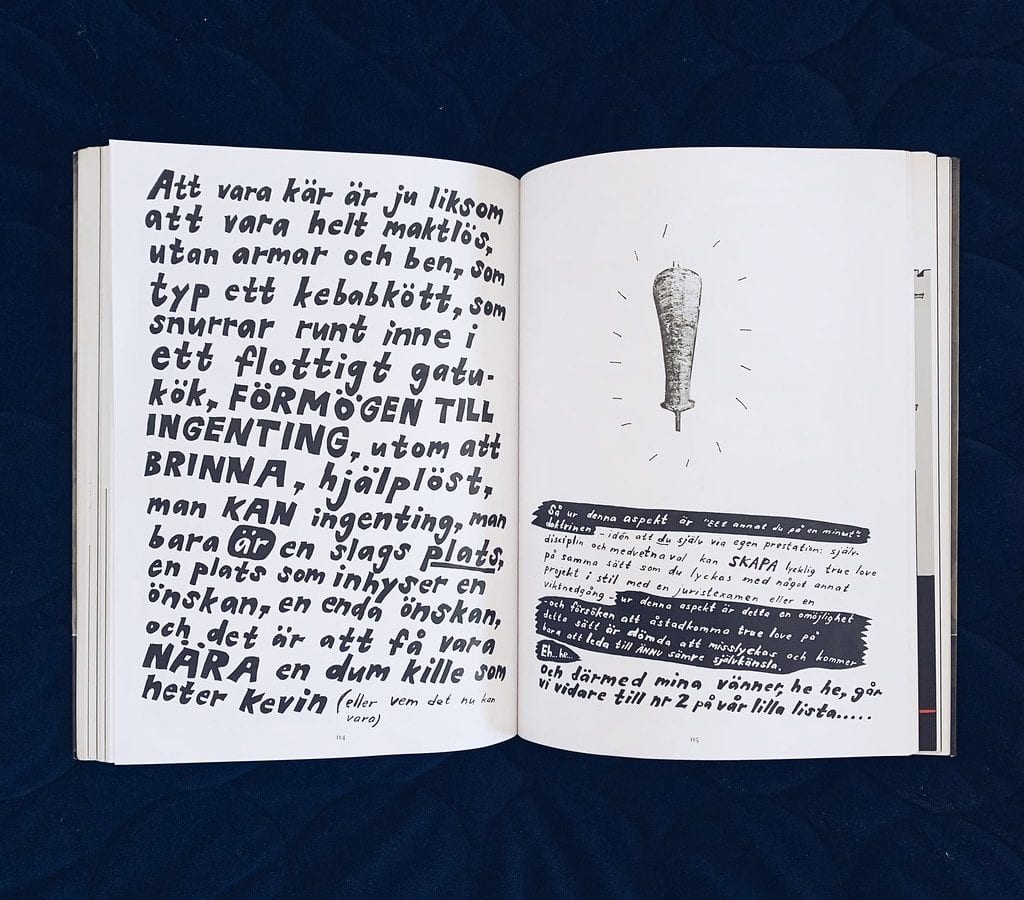 Att vara kär är ju liksom
att vara helt maktlös,
utan armar och ben, som
typ ett kebabkött, som
snurrar runt inne i
ett flottigt gatu-
kök, FÖRMÖGEN TILL
INGENTING, utom att
BRINNA, hjälplöst,
man KAN ingenting, man
bara är en slags plats,
en plats som inhyser en
önskan, en enda önskan,
och det är att få vara
NÄRA en dum kille som
heter Kevin (eller vem det nu kan
vara)
114
Så ur denna aspekt är "Ett annat du på en minut"-
doktrinen - idén att du själv via egen prestation: själv-
disciplin och medvetna val kan SKAPA lycklig true love
på samma sätt som du lyckas med något annat
projekt i stil med en juristexamen eller en
viktnedgång - ur denna aspekt är detta en omöjlighet
och försöken att åstadkomma true love på
detta sätt är dömda att misslyckas och kommer
bara att leda till ÄNNU sämre självkänsla.
Eh... he...
och därmed mina vänner, he he, går
vi vidare till nr 2 på vår lilla lista.....
115